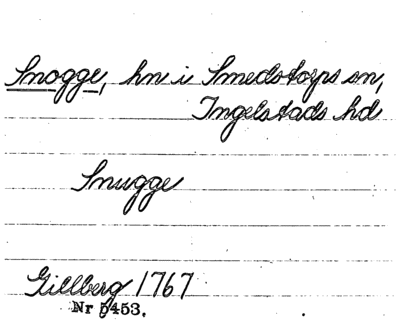 Snogge, hn i Smedstorps sn,
Ingelstads hd
Snugge
Gillberg 1767
Nr 5453.